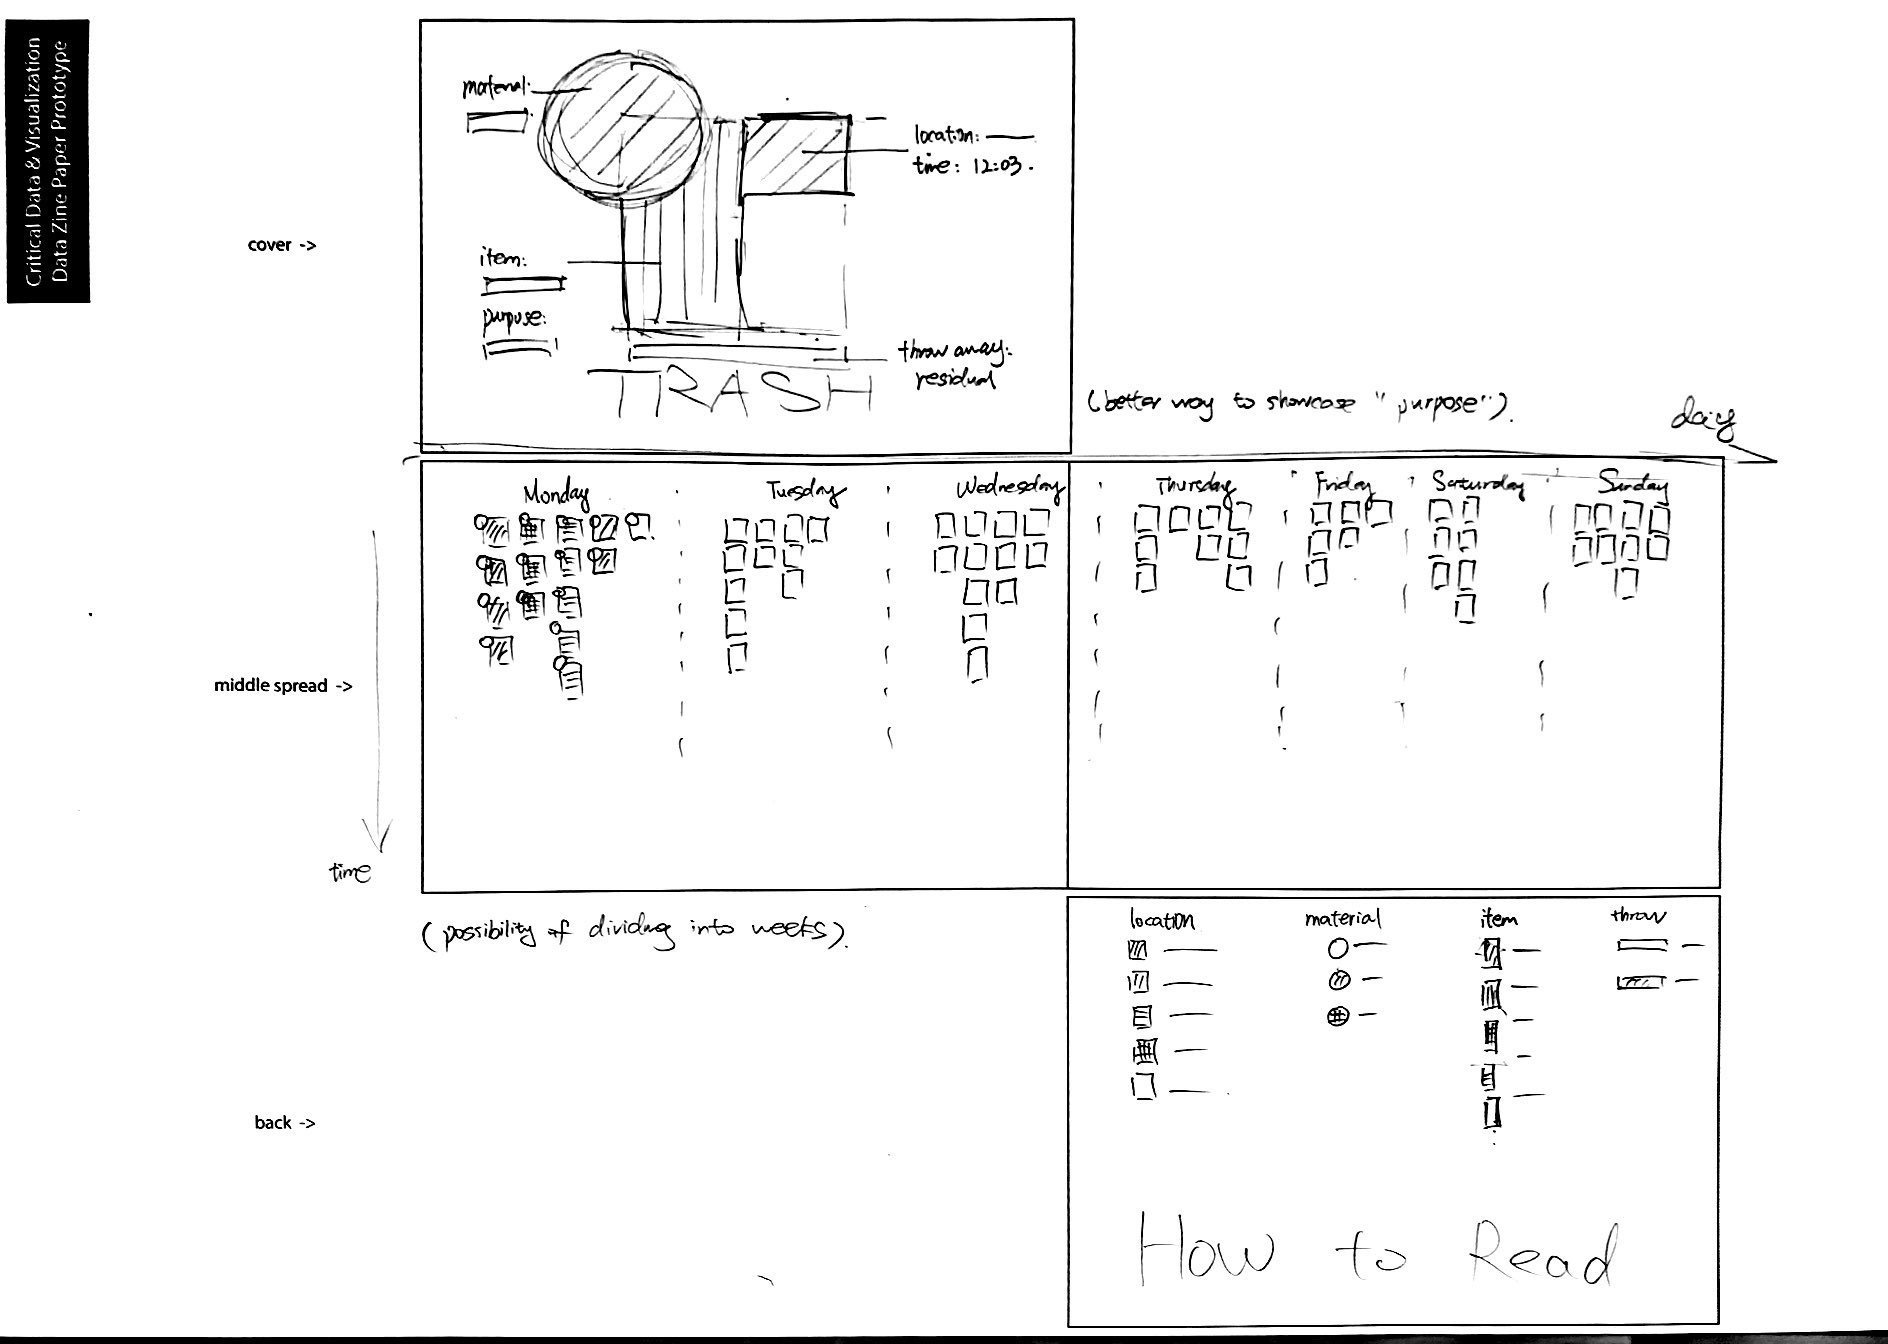 Critical Data & Visualization
Data Zine Paper Prototype
cover ->
material:
location:
time: 12:03.
item:
purpose:
throw away:
residual
TRASH
(better way to showcase "purpose").
day
Monday Tuesday Wednesday Thursday Friday Saturday Sunday
middle spread ->
time
(possibility of dividing into weeks).
location material item throw
back ->
How to Read